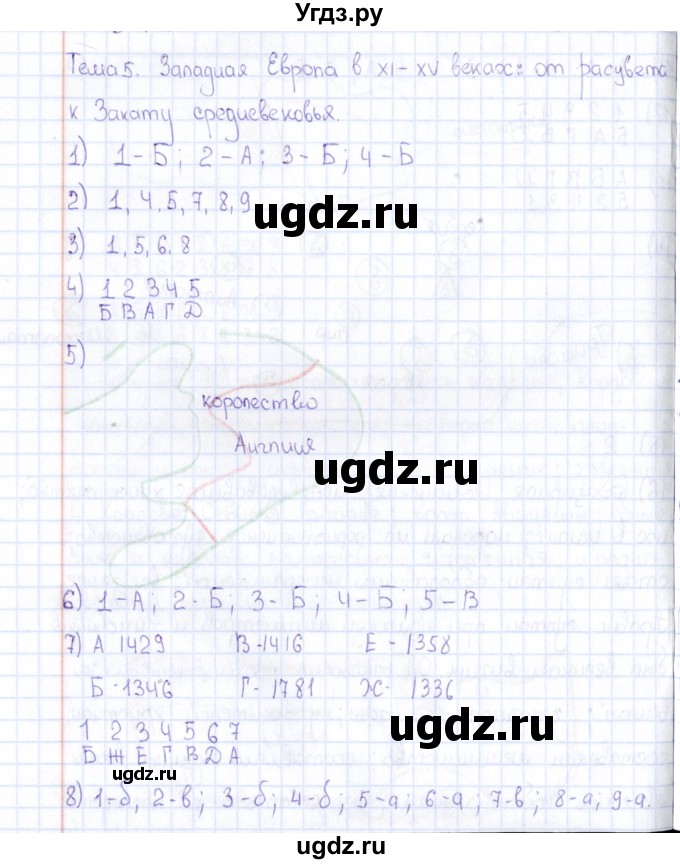 Угдз.ру
Тема 5. Западная Европа в XI-XV веках: от расцвета
к Закату средневековья.
1) 1-Б; 2-А; 3-Б; 4-Б
2) 1, 4, 5, 7, 8, 9
ugdz.ru
3) 1, 5, 6, 8
4) 1 2 3 4 5
Б В А Г Д
5)
королество
Англия
ugdz.ru
6) 1-А; 2-Б; 3-Б; 4-Б; 5-В
7) А 1429 В-1416 Е-1358
Б-1346 Г-1781 Ж-1336
ugdz.ru
1 2 3 4 5 6 7
Б Ж Е Г В Д А
ugdz.ru
8) 1-б, 2-в; 3-б; 4-б; 5-а; 6-а; 7-в; 8-а; 9-а.
ugdz.ru